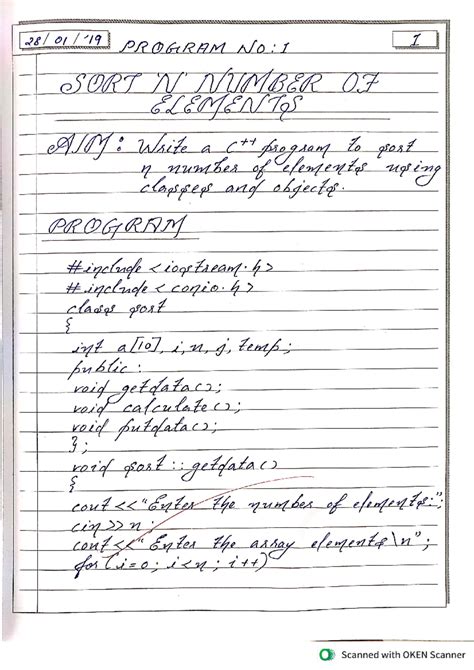 28/01/'19
PROGRAM NO: 1
1
SORT 'N' NUMBER OF
ELEMENTS
AIM: Write a C++ program to sort
n number of elements using
classes and objects.
PROGRAM
#include <iostream.h>
#include <conio.h>
class sort
{
int a[10], i, n, j, temp;
public:
void getdata();
void calculate();
void putdata();
};
void sort :: getdata()
{
cout<<"Enter the number of elements:";
cin>>n;
cout<<"Enter the array elements\n";
for(i=0; i<n; i++)
Scanned with OKEN Scanner